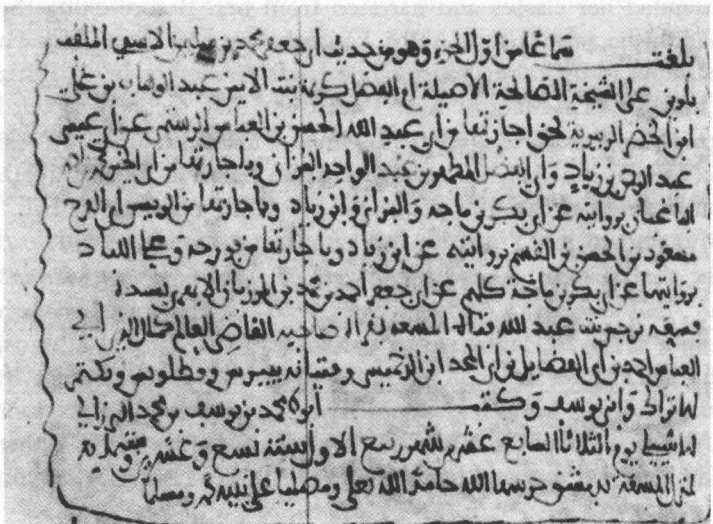 بلغت سماعا من اول الجزء وهو من حديث ابي جعفر محمد بن سليمن الاسدي الملقب
بلوين على الشيخة الصالحة الاصيلة ام الفضل كريمة بنت الامين عبد الوهاب بن علي
ابن الخضر الزبيرية بحق اجازتها من ابي عبد الله الحسن بن العباس الرستمي عن ابي عيسى
عبد الرحمن بن زياد وابي الفضل المطهر بن عبد الواحد البزاني وباجازتها من ابي الخير محمد بن
الباغبان بروايته عن ابي بكر بن ماجه والبزاني وابن زياد وباجازتها من الرييس ابي الفرج
مسعود بن الحسن بن القسم بروايته عن ابن زياد وباجازتها من
بروايتهما عن ابي بكر بن ماجة كلهم عن ابي جعفر احمد بن محمد بن المرزبان الابهري بسنده
فسمعه بنت عبد الله صاحبه القاضي العالم كمال الدين ابي
العباس احمد بن ابي الفضايل بن ابي المجد ابن وفتيانه بيبرس و
وابن يوسف وكتب محمد بن يوسف بن محمد البرزالي
الاشبيلي يوم الثلاثا السابع عشر من شهر ربيع الاول سنة تسع وعشرين وستمايه
بمنزل المسمعة بدمشق حرسها الله حامدا لله تعلى ومصليا على نبيه محمد ومسلما